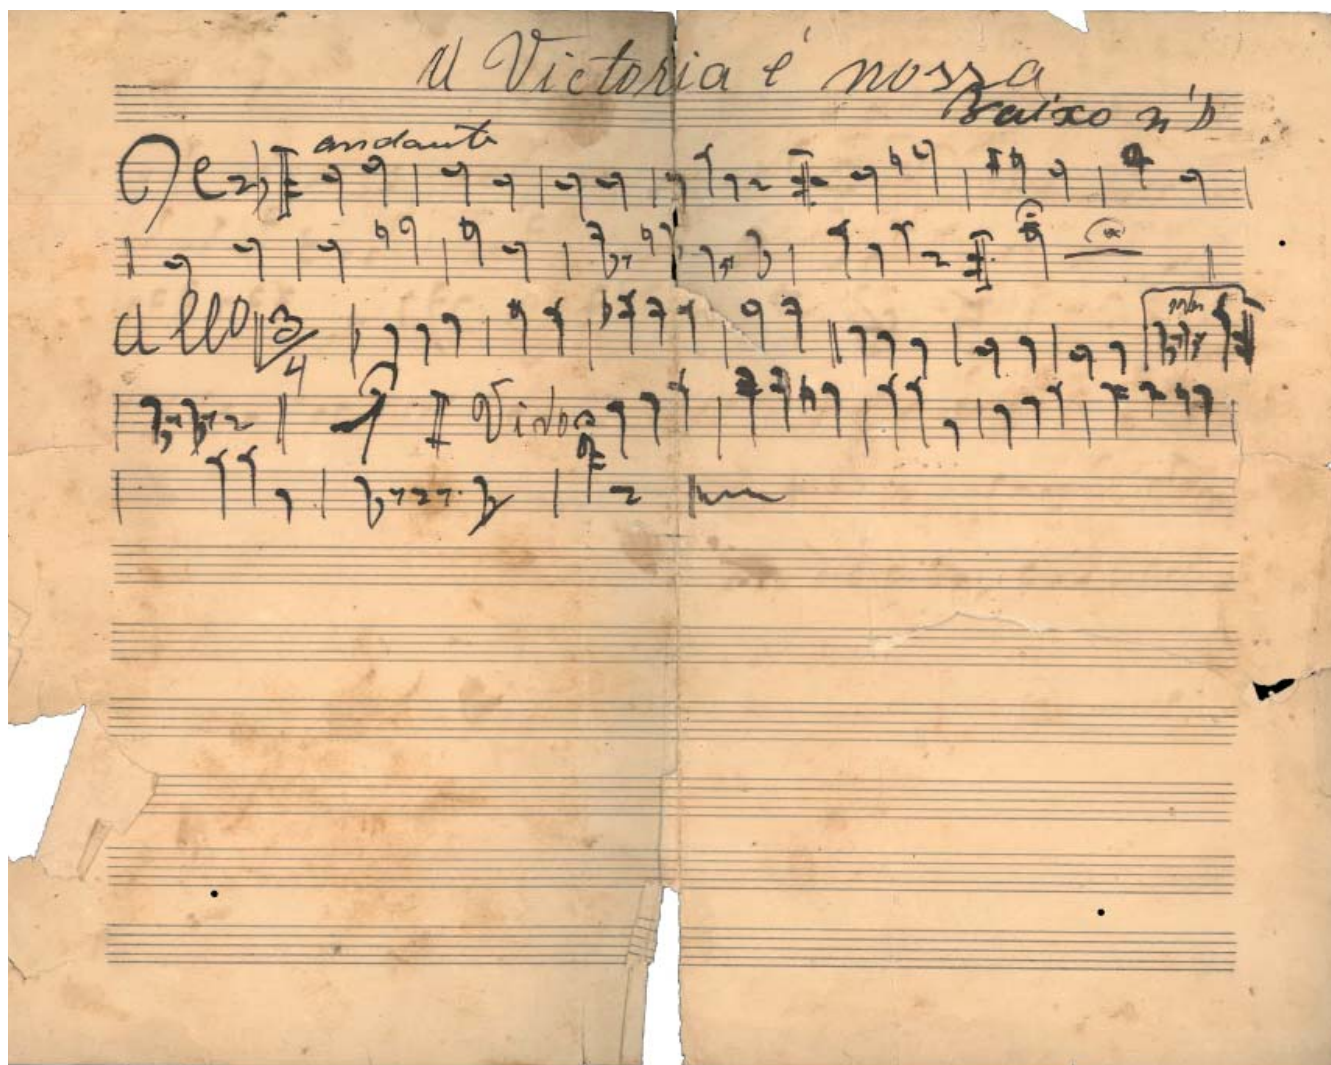 A Victoria é nossa
Baixo si b
andante
C
allo 3/4